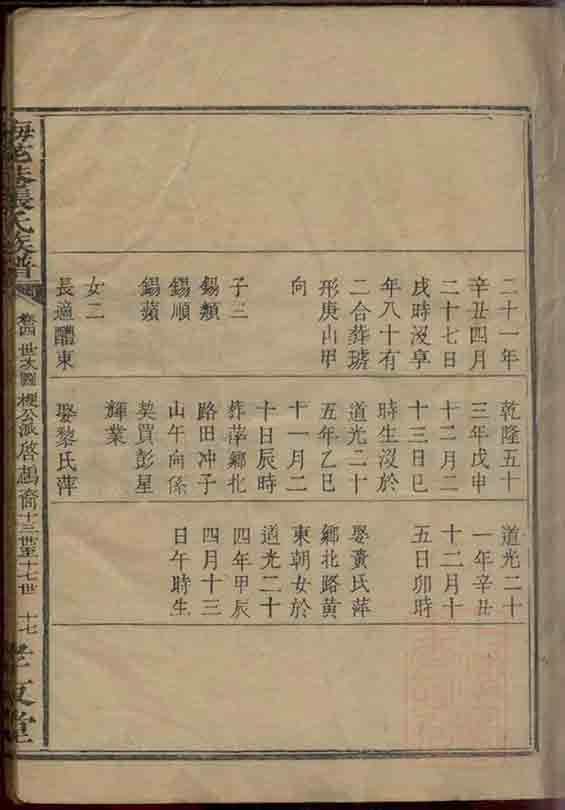 二十一年
辛丑四月
二十七日
戌時沒享
年八十有
二合葬琥
形庚山甲
向
子三
錫類
錫順
錫蘋
女二
長適醴東
乾隆五十
三年戊申
十二月二
十三日巳
時生沒於
道光二十
五年乙巳
十一月二
十日辰時
葬萍鄉北
路田冲子
山午向係
契買彭星
輝業
娶黎氏萍
道光二十
一年辛丑
十二月十
五日卯時
娶黃氏萍
鄉北路黃
東朝女於
道光二十
四年甲辰
四月十三
日午時生
張氏族譜
卷四 世次圖 梗公派啓鵡裔十三世至十七世 十七
孝友堂